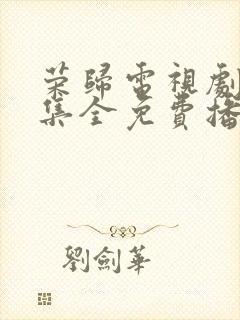 荣歸電視劇
集全免費播
劉劍華